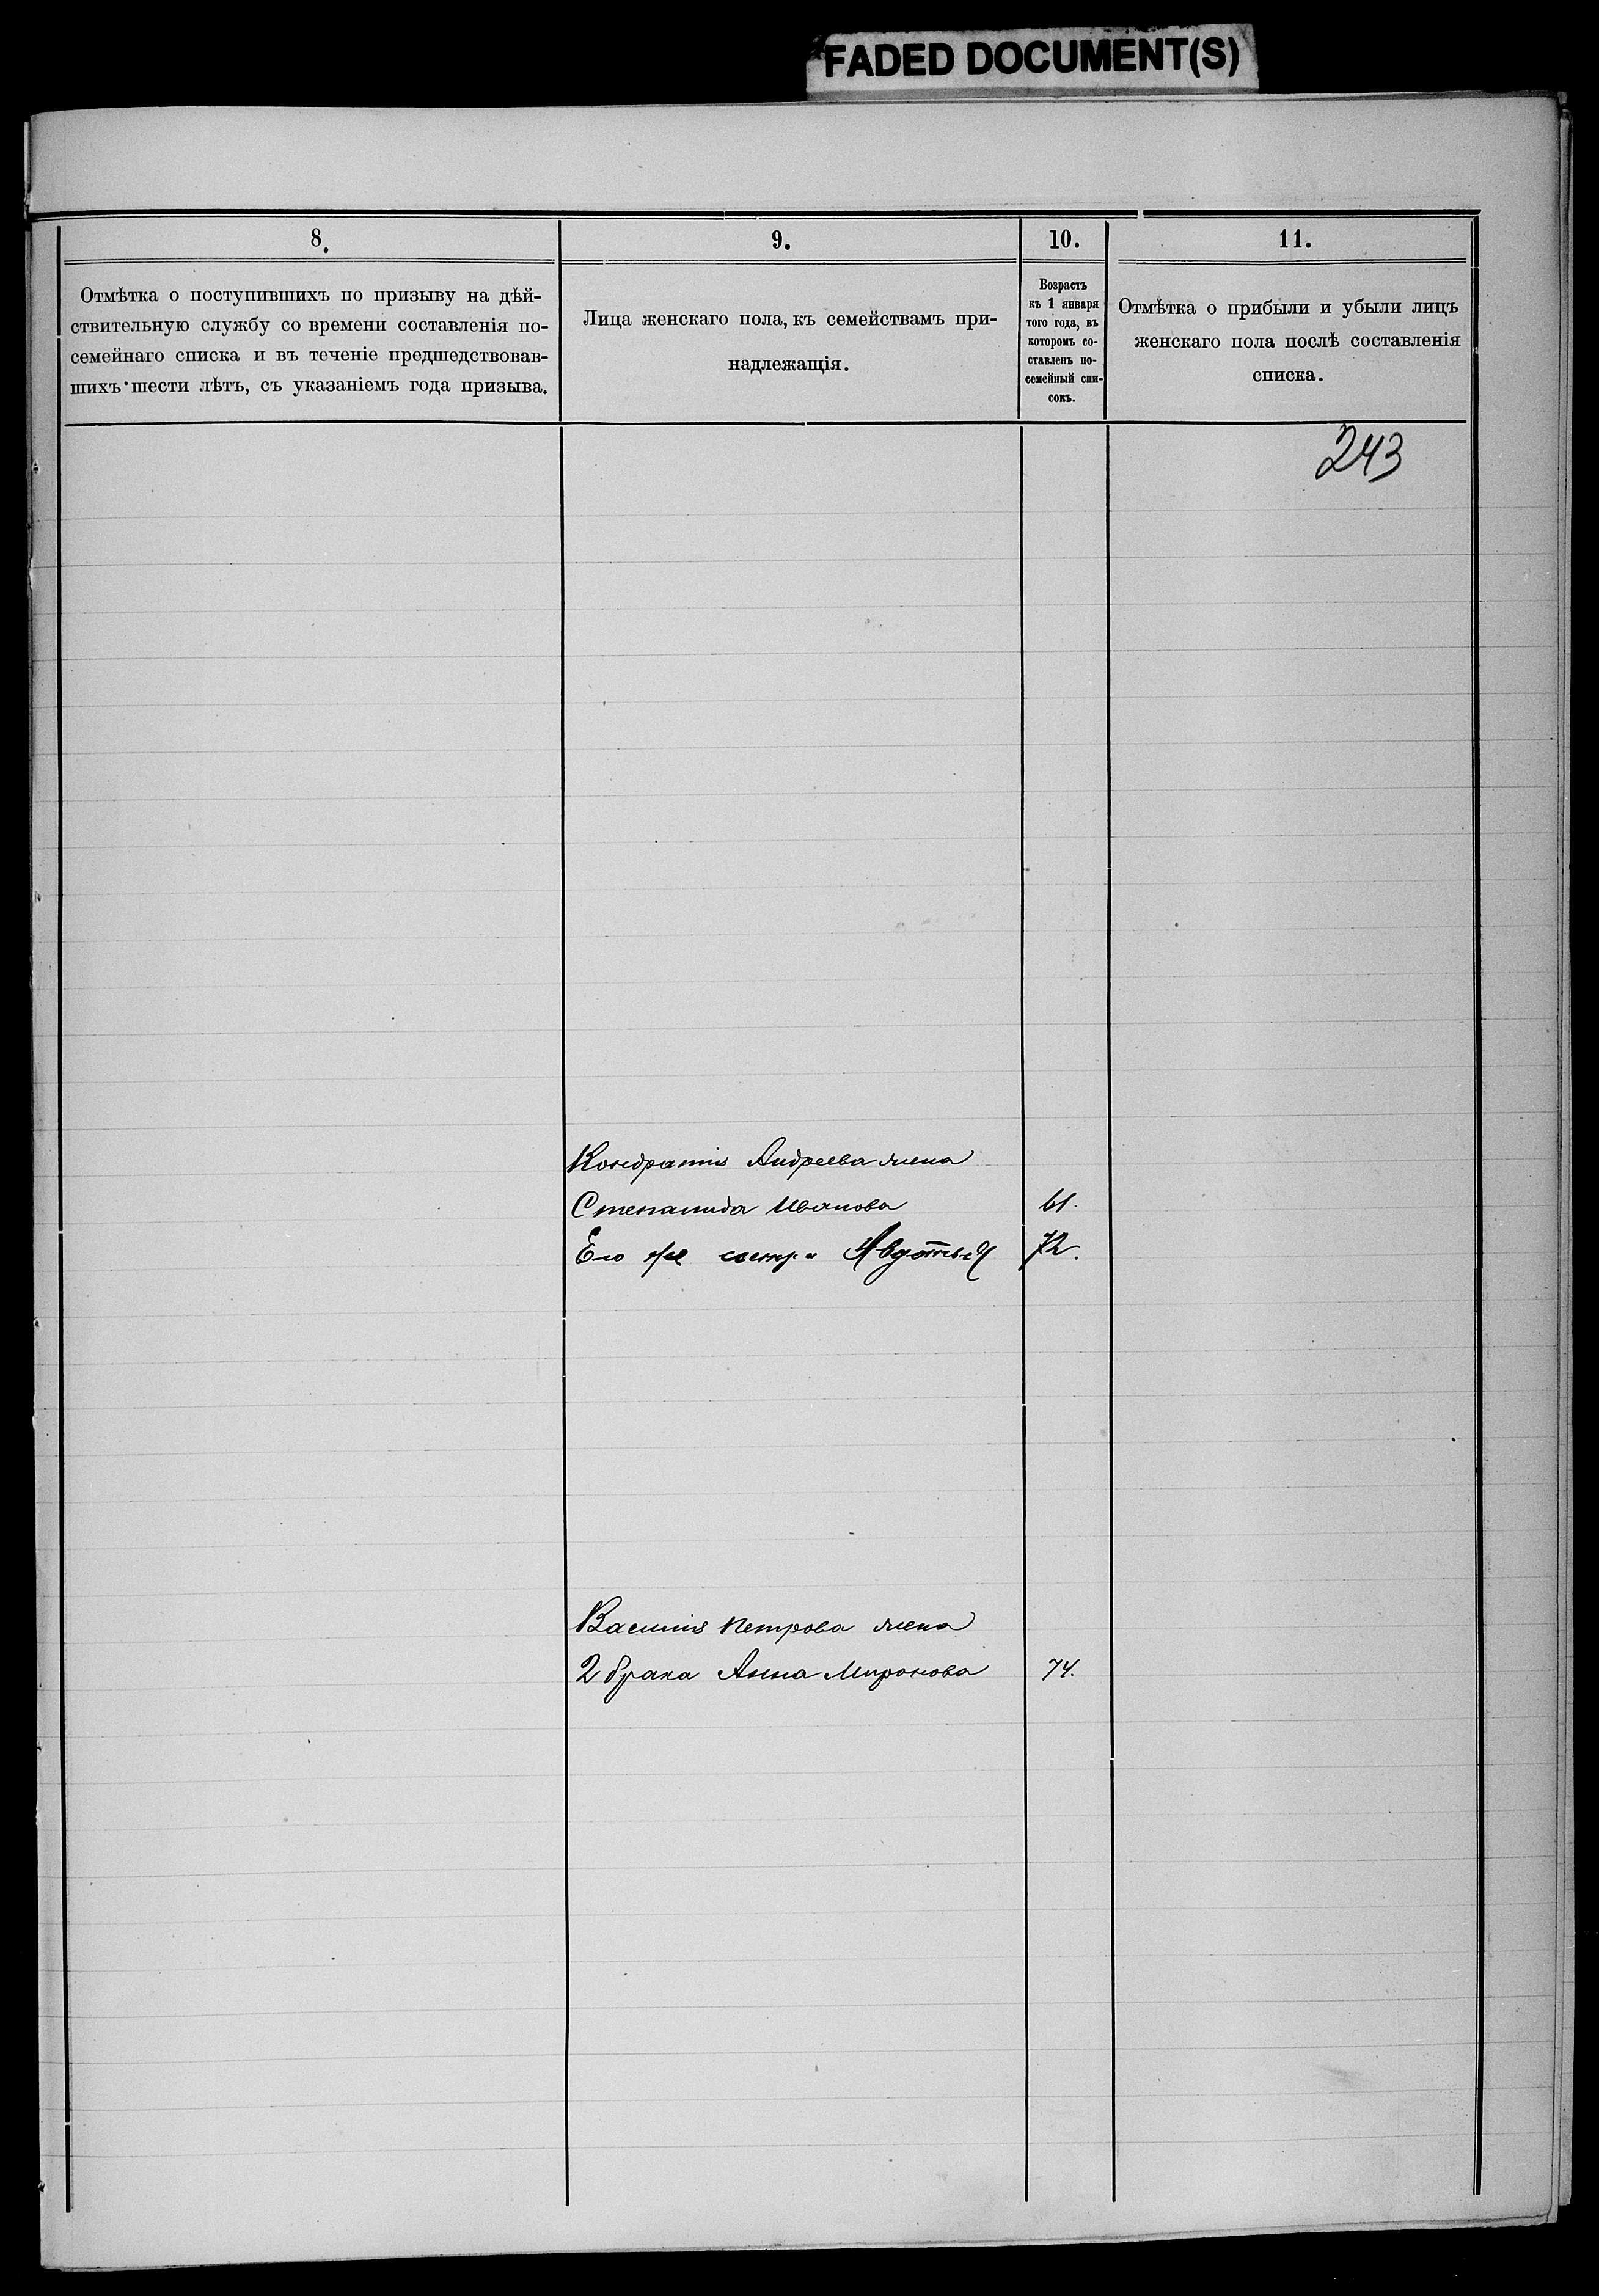 FADED DOCUMENT(S)
8.
Отмѣтка о поступившихъ по призыву на дѣй-
ствительную службу со времени составленія по-
семейнаго списка и въ теченіе предшедствовав-
шихъ шести лѣтъ, съ указаніемъ года призыва.
9.
Лица женскаго пола, къ семействамъ при-
надлежащія.
10.
Возрастъ
къ 1 января
того года, въ
которомъ со-
ставленъ по-
семейный спи-
сокъ.
11.
Отмѣтка о прибыли и убыли лицъ
женскаго пола послѣ составленія
списка.
243
Кондратія Андреева жена
Степанида Иванова 61.
Его же сестра Авдотья 72.
Василія Петрова жена
2 брака Анна Миронова 74.